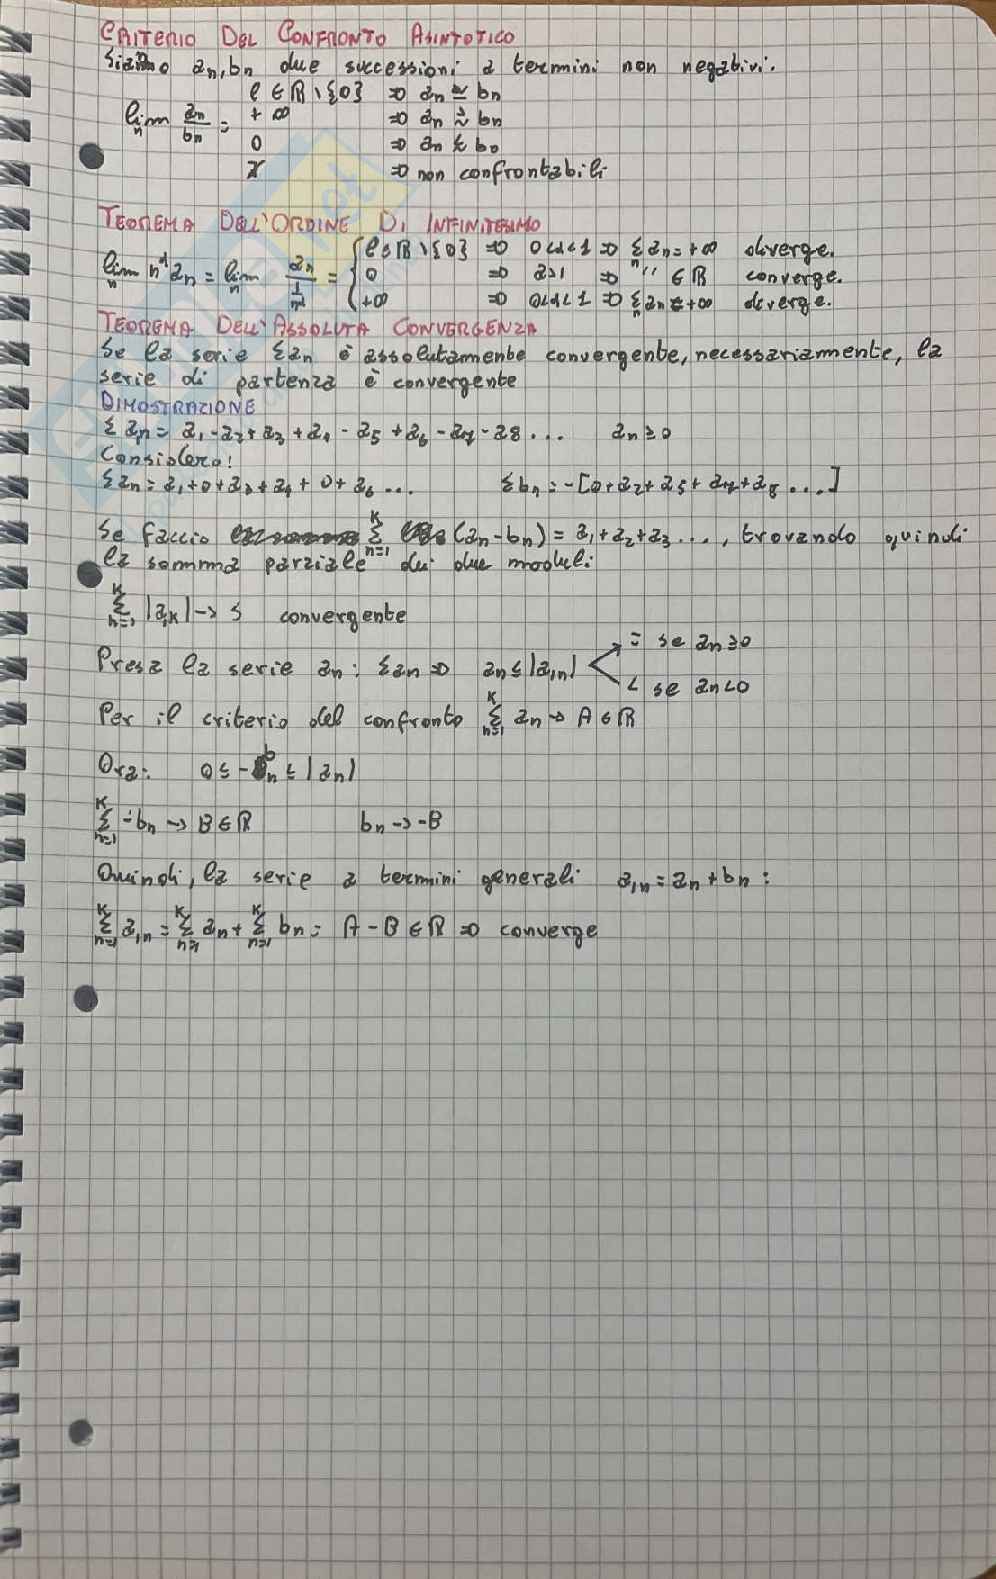 CRITERIO DEL CONFRONTO ASINTOTICO
Siano an, bn due successioni a termini non negativi.
lim n an/bn = l ∈ ℝ \ {0} ⇒ an ≃ bn
+∞ ⇒ an ≳ bn
0 ⇒ an ≲ bn
∄ ⇒ non confrontabili
TEOREMA DELL'ORDINE DI INFINITESIMO
lim n n^α an = lim n an / (1/n^α) = { l ∈ ℝ \ {0} ⇒ 0<α<1 ⇒ Σ an = +∞ diverge.
0 ⇒ α>1 ⇒ '' ∈ ℝ converge.
+∞ ⇒ 0<α<1 ⇒ Σ an = +∞ diverge.
TEOREMA DELL'ASSOLUTA CONVERGENZA
Se la serie Σan è assolutamente convergente, necessariamente, la
serie di partenza è convergente
DIMOSTRAZIONE
Σ an = a1 - a2 + a3 + a4 - a5 + a6 - a7 - a8 ... an ≥ 0
Considero:
Σ an = a1 + 0 + a3 + a4 + 0 + a6 ... Σ bn = -[0 + a2 + a5 + a7 + a8 ...]
Se faccio Σ n=1 K (an - bn) = a1 + a2 + a3 ..., trovando quindi
la somma parziale dei due moduli:
Σ n=1 K |a,K| → S convergente
Presa la serie an: Σan ⇒ an ≤ |a,n| = se an ≥ 0
< se an < 0
Per il criterio del confronto Σ n=1 K an → A ∈ ℝ
Ora: 0 ≤ -bn ≤ |an|
Σ n=1 K -bn → B ∈ ℝ bn → -B
Quindi, la serie a termini generali a,n = an + bn:
Σ n=1 K a,n = Σ n=1 K an + Σ n=1 K bn = A - B ∈ ℝ ⇒ converge